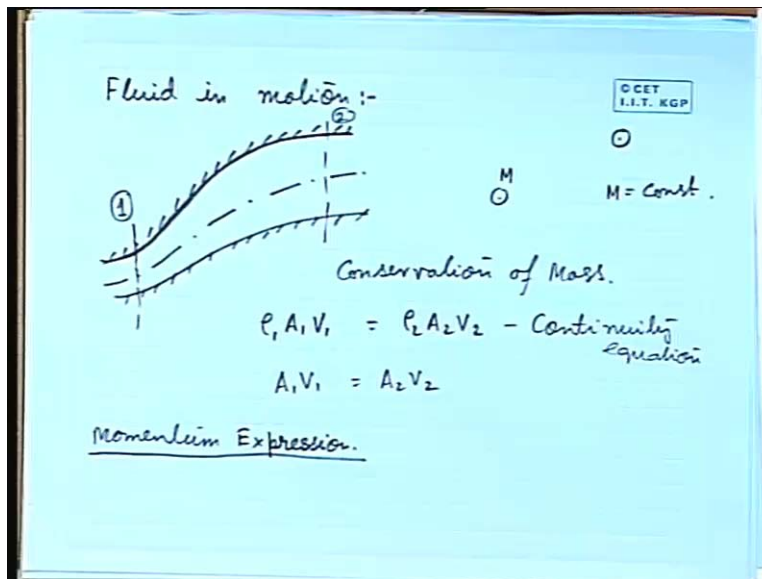 Fluid in motion :-
©CET
I.I.T. KGP
②
①
M
M = Const.
Conservation of Mass.
ρ₁ A₁ V₁ = ρ₂ A₂ V₂ - Continuity equation
A₁V₁ = A₂V₂
Momentum Expression.